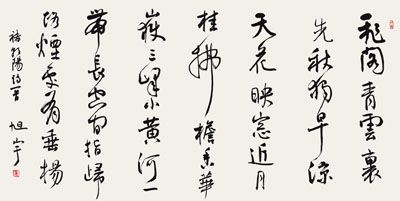 飛閣青雲裏
先秋獨早涼
天花映窓近月
桂拂檐香華
嶽三峰小黄河一
帶長空間指歸
路煙處有垂楊
褚朝陽詩一首 旭宇